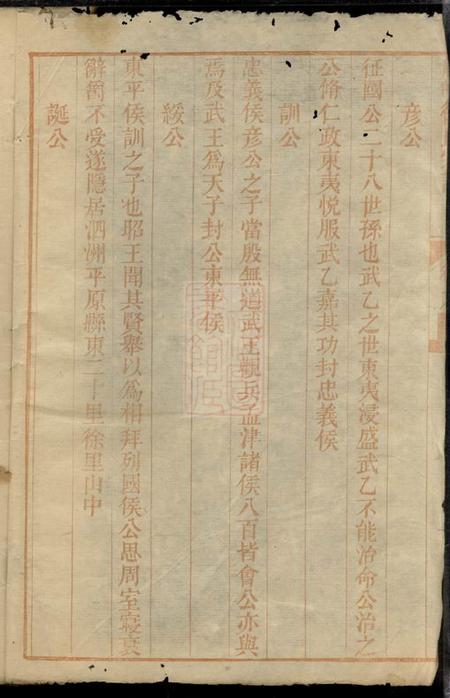 彦公
征國公二十八世孫也武乙之世東夷浸盛武乙不能治命公治之
公脩仁政東夷悦服武乙嘉其功封忠義侯
訓公
忠義侯彦公之子當殷無道武王觀兵孟津諸侯八百皆會公亦與
焉及武王為天子封公東平侯
綏公
東平侯訓之子也昭王聞其賢舉以為相拜列國侯公思周室寖衰
辭爵不受遂隱居泗洲平原縣東二十里徐里山中
誕公